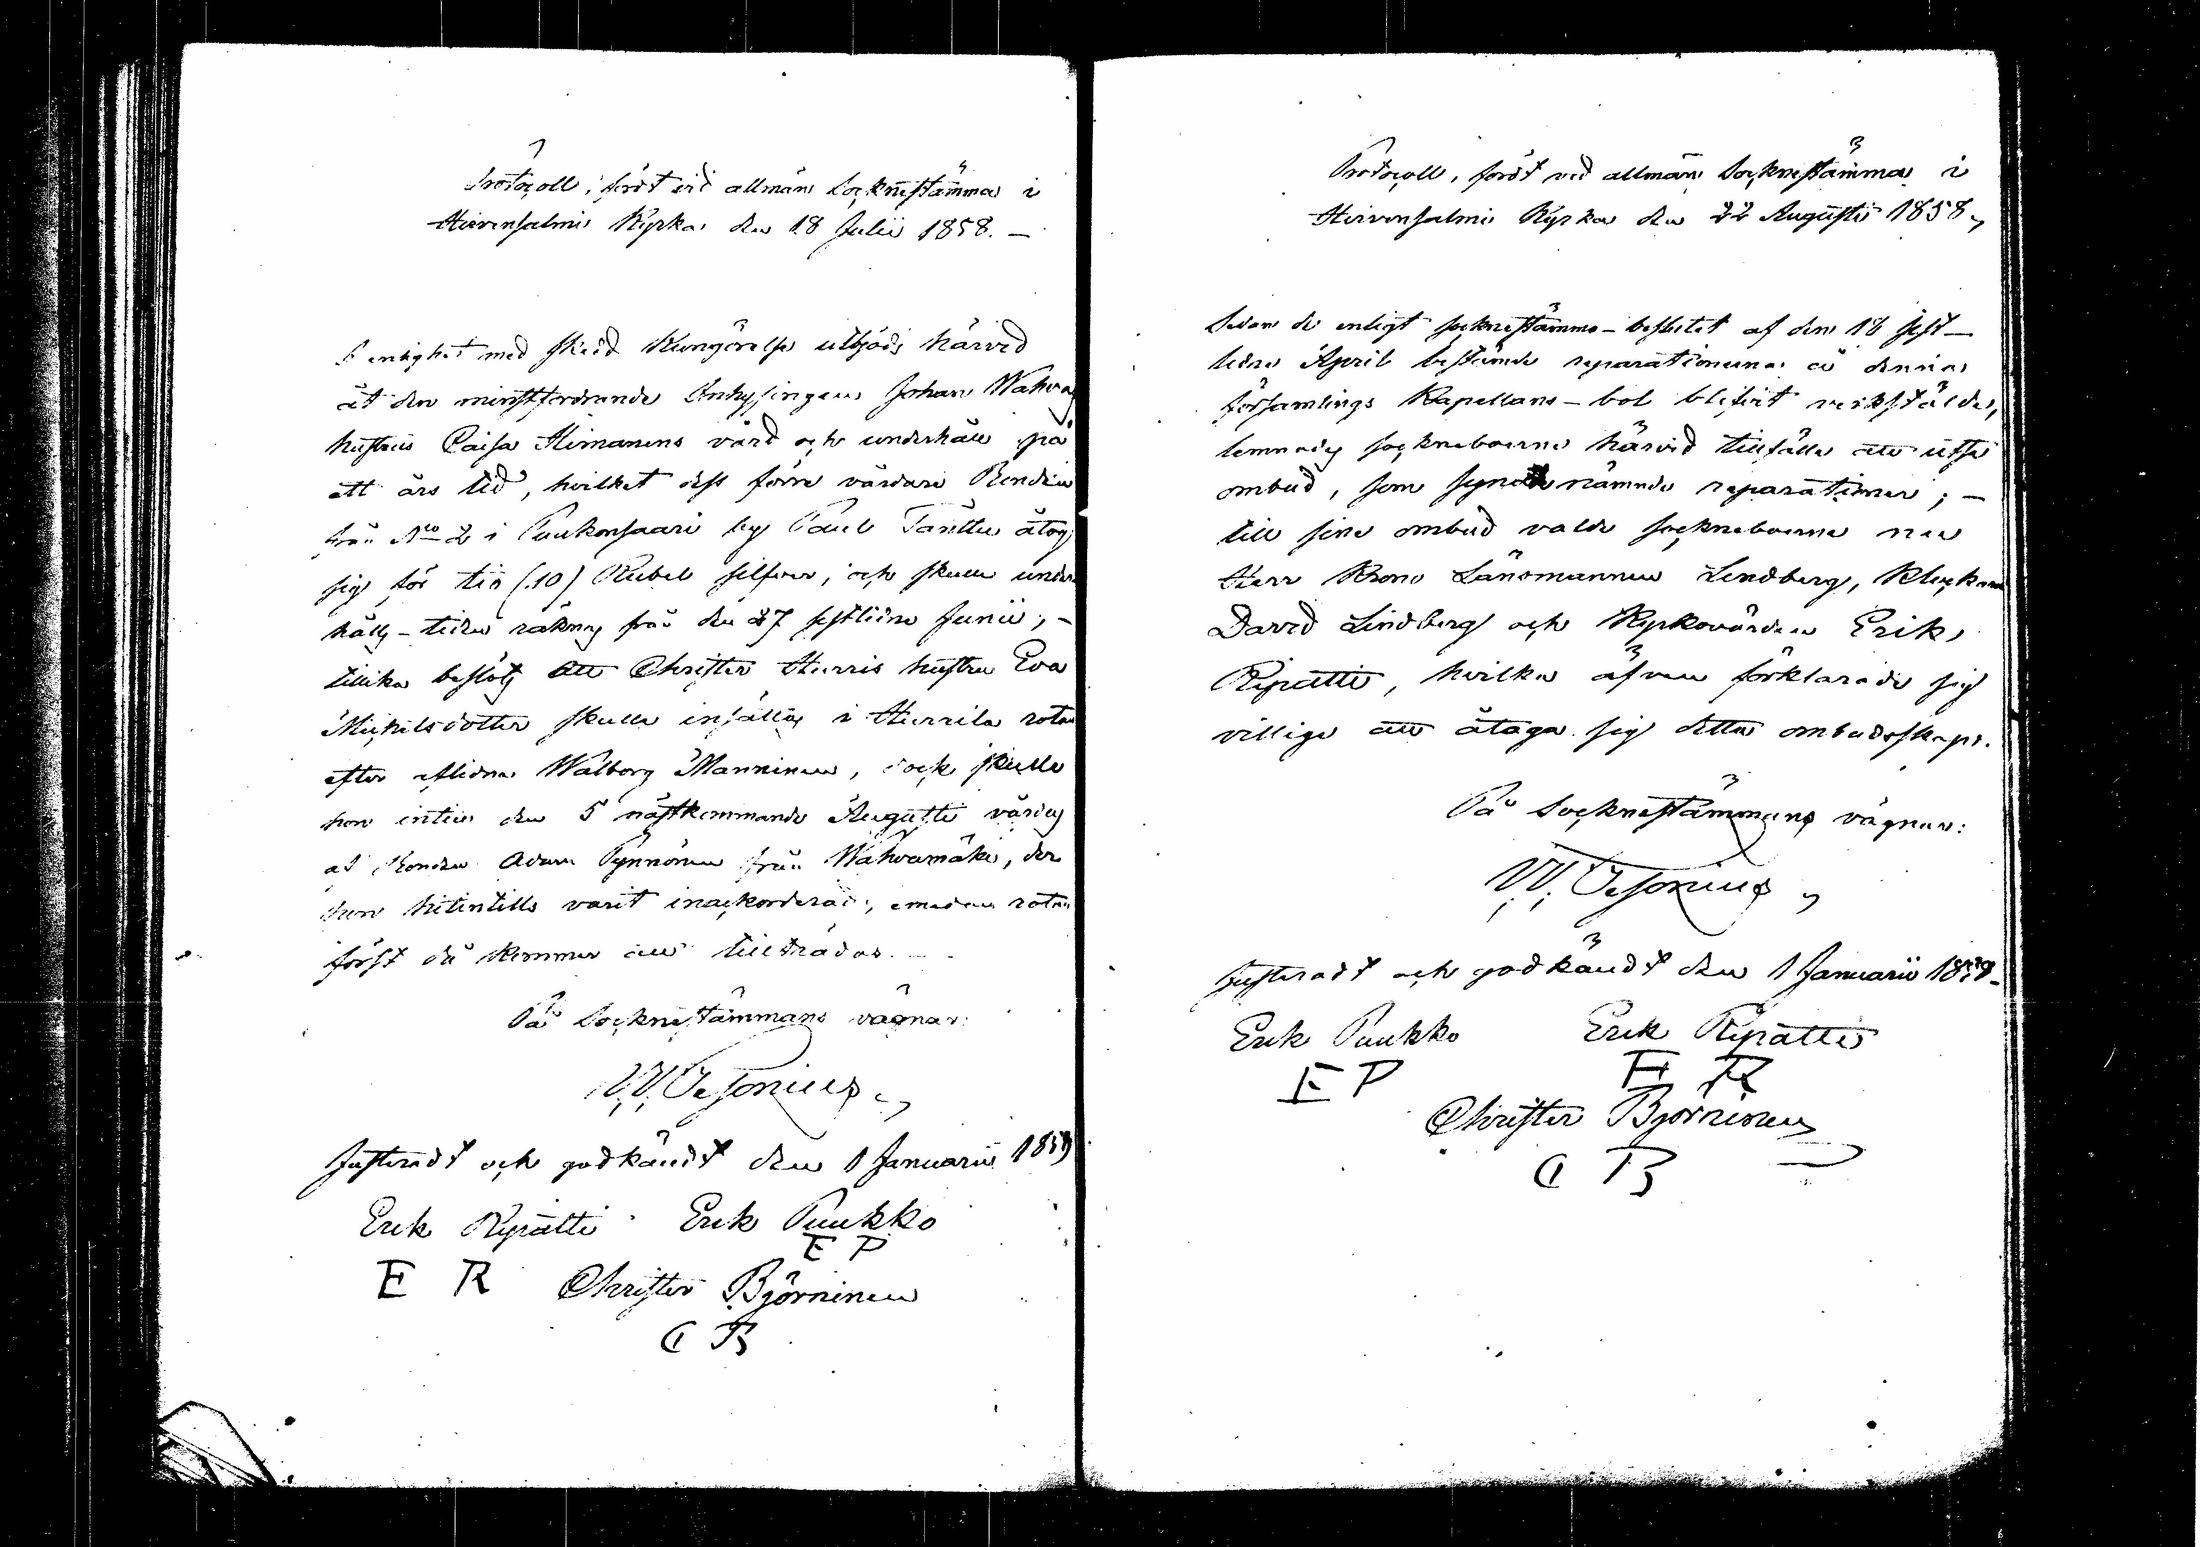 Protocoll, fördt vid allmän Socknestämma i
Hirvensalmi Kyrka den 18 Julii 1858. —
I enlighet med skedd Kungörelse utbjöds härvid
åt den minstfordrande Inhysingen Johan Wahvas
hustrus Caisa Himanens vård och underhåll på
ett års tid, hvilket dess förre vårdare Bonden
från No 2 i Puukonsaari by Paul Tänttu åtog
sig för tio (10) Rubel silfver, och skulle under-
hålls-tiden räknas från den 27 sistlidne Junii; —
tillika beslöts att Christer Hurris hustru Eva
Michelsdotter skulle insättas i Hurrila rotan
efter aflidna Walborg Manninen, dock skulle
hon intill den 5 nästkommande Augusti vårdas
af Bonden Adam Pynnönen från Wahvamäki, der
hon hitintills varit inackorderad, emedan rotan
först då kommer att tillträdas. —
På Socknestämmans vägnar:
W. Vesonius
Justeradt och godkändt den 1 Januarii 1859
Erik Ripatti Erik Puukko
E P
E R Christer Björninen
C B
Protocoll, fördt vid allmän Socknestämma i
Hirvensalmi Kyrka den 22 Augusti 1858
Sedan de enligt sockenstämmo-beslutet af den 18 sist-
lidne April bestämda reparationerna å denna
församlings Kapellans-bol blifvit verkställda,
lemnades sockneboerna härvid tillfälle att utse
ombud, som syna nämnde reparationer; —
till sine ombud valde sockneboerne nu
Herr Krono Länsmannen Lindberg, Klockaren
David Lindberg och Kyrkovärden Erik
Ripatti, hvilka äfven förklarade sig
villige att åtaga sig detta ombudsskap.
På Socknestämmans vägnar:
W. Vesonius
Justeradt och godkändt den 1 Januarii 1859.
Erik Puukko Erik Ripatti
E P E R
Christer Björninen
C B